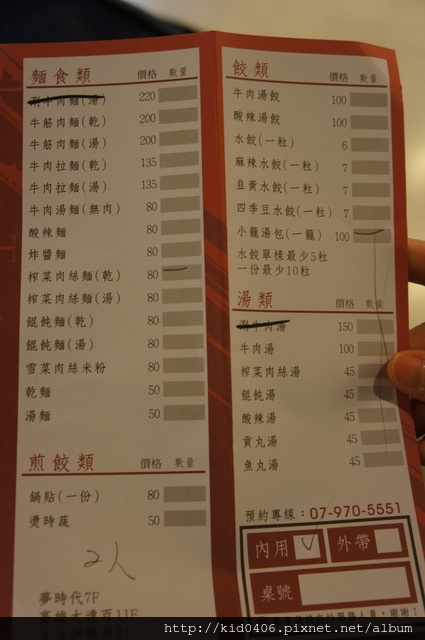 麵食類 價格 數量
涮牛肉麵(湯) 220
牛筋肉麵(乾) 200
牛筋肉麵(湯) 200
牛肉拉麵(乾) 135
牛肉拉麵(湯) 135
牛肉湯麵(無肉) 80
酸辣麵 80
炸醬麵 80
榨菜肉絲麵(乾) 80
榨菜肉絲麵(湯) 80
餛飩麵(乾) 80
餛飩麵(湯) 80
雪菜肉絲米粉 80
乾麵 50
湯麵 50
煎餃類 價格 數量
鍋貼(一份) 80
燙時蔬 50
2人
夢時代7F
高雄大遠百11F
餃類 價格 數量
牛肉湯餃 100
酸辣湯餃 100
水餃(一粒) 6
麻辣水餃(一粒) 7
韭黃水餃(一粒) 7
四季豆水餃(一粒) 7
小籠湯包(一籠) 100
水餃單樣最少5粒
一份最少10粒
湯類 價格 數量
涮牛肉湯 150
牛肉湯 100
榨菜肉絲湯 45
餛飩湯 45
酸辣湯 45
貢丸湯 45
魚丸湯 45
預約專線：07-970-5551
內用 V 外帶
桌號
http://kid0406.pixnet.net/album